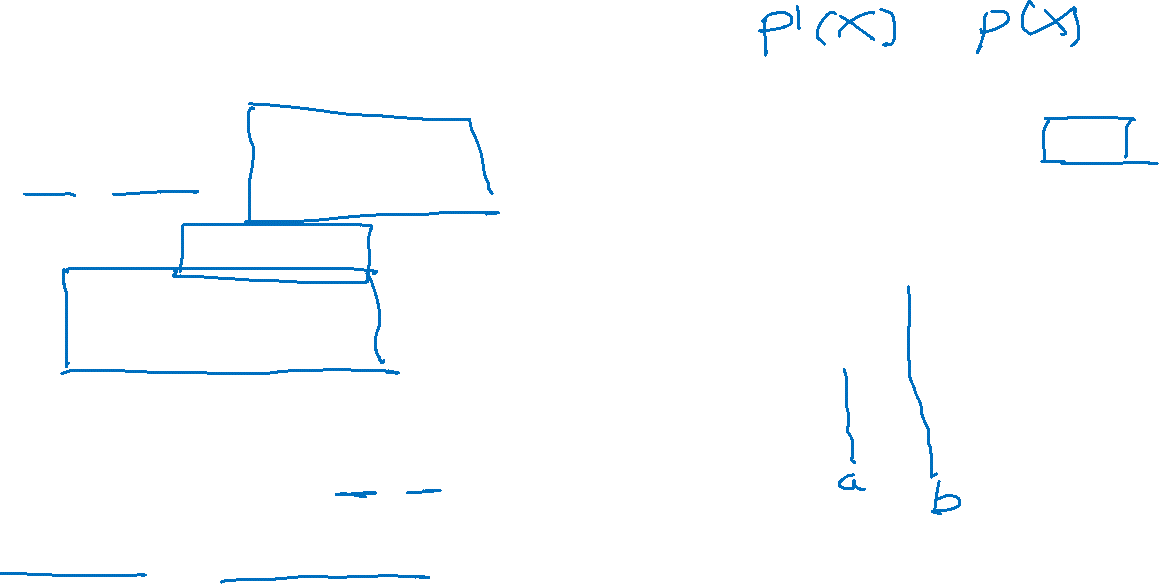 p'(x) p(x)
a
b